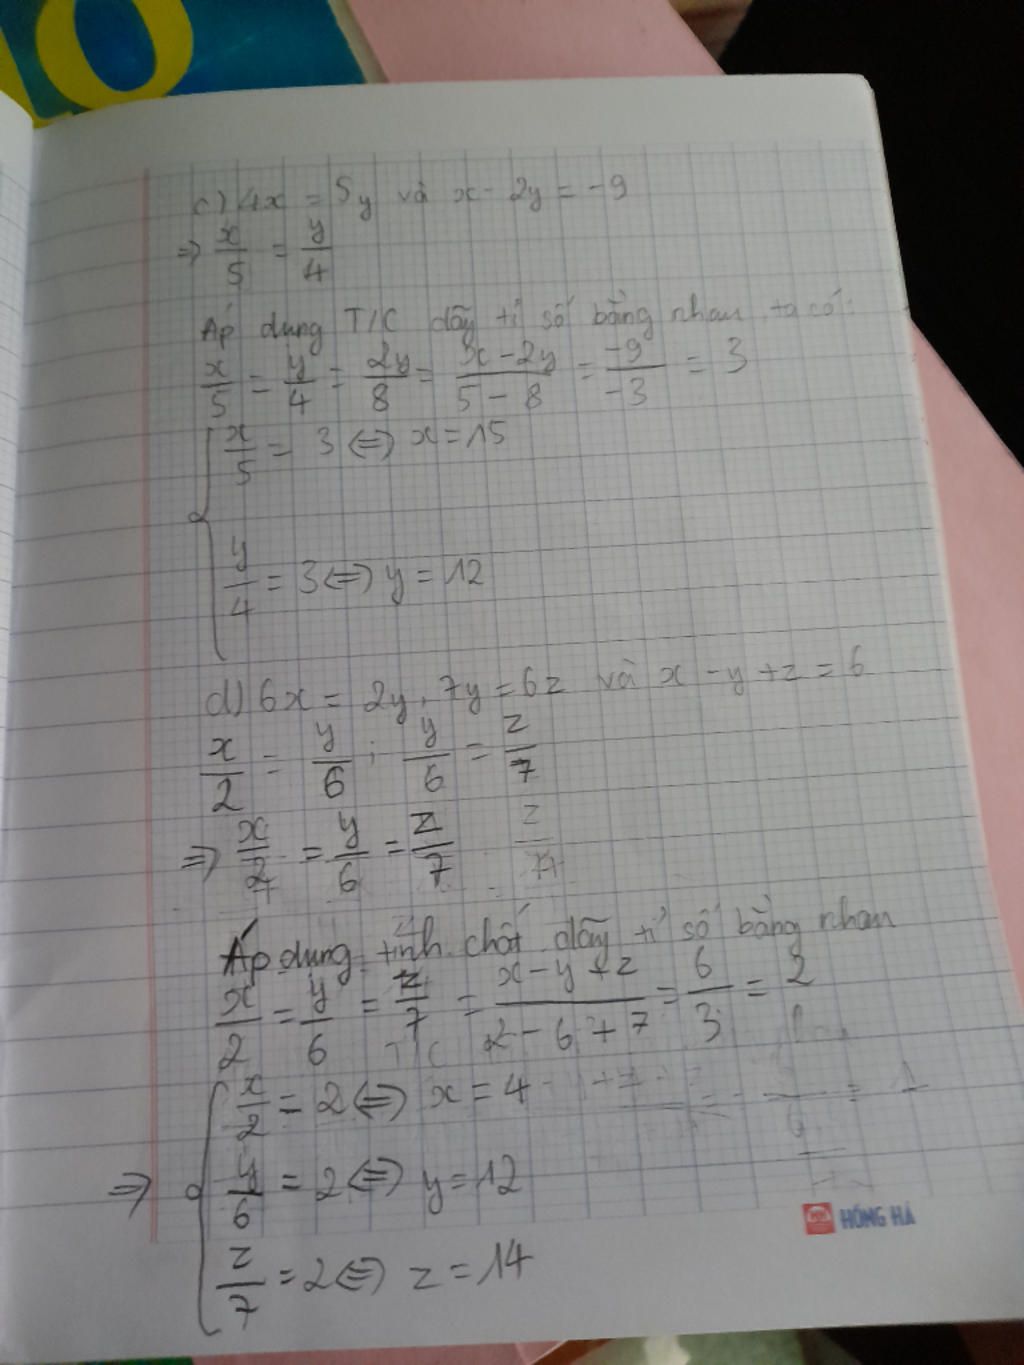 10
c) 4x = 5y và x - 2y = -9
⇒ x/5 = y/4
Áp dụng T/C dãy tỉ số bằng nhau ta có:
x/5 = y/4 = 2y/8 = x-2y/5-8 = -9/-3 = 3
x/5 = 3 ⇔ x = 15
y/4 = 3 ⇔ y = 12
d) 6x = 2y, 7y = 6z và x - y + z = 6
x/2 = y/6 ; y/6 = z/7
⇒ x/2 = y/6 = z/7
Áp dụng tính chất dãy tỉ số bằng nhau
x/2 = y/6 = z/7 = x-y+z/2-6+7 = 6/3 = 2
x/2 = 2 ⇔ x = 4
⇒ y/6 = 2 ⇔ y = 12
z/7 = 2 ⇔ z = 14
HỒNG HÀ